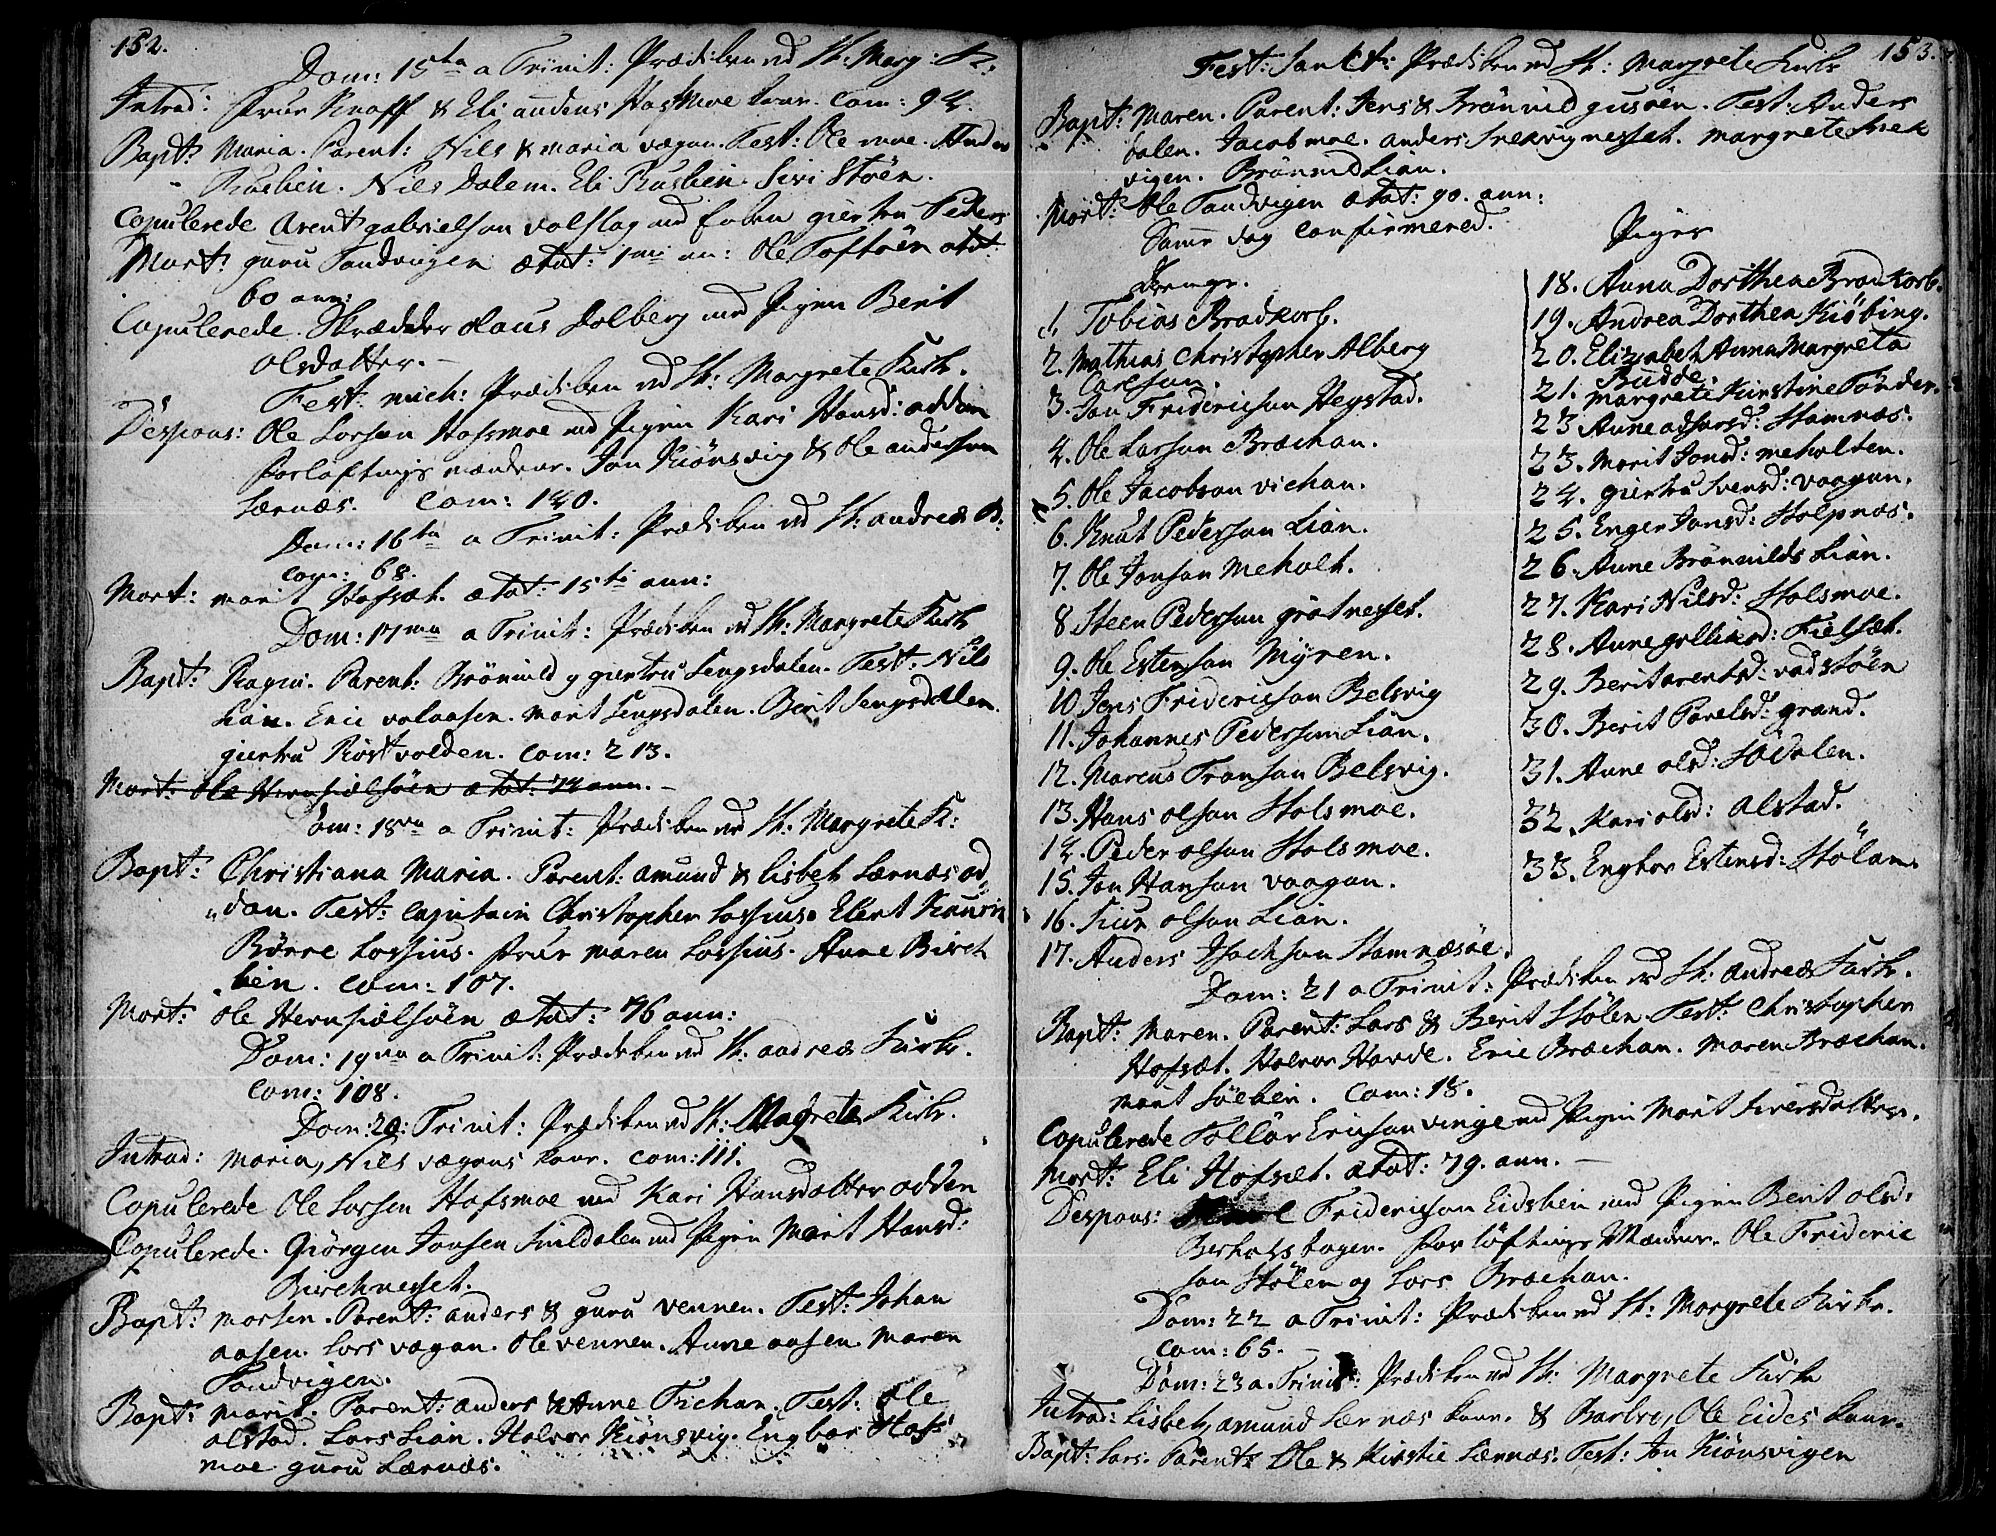 152.
Dom: 15ta a Trinit: Prædiken ved St: Marg: K:
Introd: Frue Knoff & Eli andens Hasmoe kone. Com: 94.
Bapt: Maria. Parent: Nils & maria vægan. Test: Ole moe. Anders
Rusbien. Nils Dalem. Eli Rusbien Siri Støen.
Copulerede Arent gabrielsøn volslag med Enken giertru Peders
Mort: guru Tandvigen ætat: 1mi an: Ole Toftøen ætat:
60 ann:
Copulerede. Skrædder Claus Dolberg med Pigen Berit
olsdatter. -
Fest: mich: Prædiken ved St: Margrete Kirke.
Despons: Ole Larsen Hofsmoe med Pigen Kari Hansd: adden
forloftnings mændene. Jon Kiønsvig & Ole andersen
Lernæs. Com: 140.
Dom: 16ta a Trinit: Prædiken ved St: andreæ K:
com: 68.
Mort: marit Hofsæt. ætat: 15ti ann:
Dom: 17ma a Trinit: Prædiken ved St: Margrete Kirke
Bapt: Ragni. Parent: Brønild & giertru Sengsdalen. Test: Nils
Lian. Eric volaasen. marit Sengsdalen. Berit Sengsdalen.
giertru Røstvolden. com: 213.
Mort: Ole Hernfiælsøen ætat: 74 ann. -
Dom: 18va a Trinit: Prædiken ved St: Margrete K:
Bapt: Christiana Maria. Parent: amund & Lisbet Lærnæs od
den. Test: Capitain Christopher Lossius. Elert Kaurin
Børre Lossius. Frue maren Lossius. Anne Birch
bien. com: 107.
Mort: Ole Hernfiælsøen ætat: 76 ann:
Dom: 19na a Trinit: Prædiken ved St: andreæ Kirke.
Com: 108.
Dom: 20: Trinit: Prædiken ved St: Magrete Kirke.
Introd: Maria, Nils vægans kone. com: 111.
Copulerede Ole Larsen Hofsmoe med Kari Hansdatter odden
Copulerede. Giørgen Jonsen Snildalen med Pigen Marit Hansd:
Birchnesset.
Bapt: morten. Parent: anders & guru vennen. Test: Johan
aasen. Lars vægan. Ole vennen. Anne aasen. Maren
Tandvigen.
Bapt: marit. Parent: anders & Anne Fichan. Test: Ole
olstad. Lars Lian. Halvor Kiønsvig. Engbor Hofs
moe guru Lærnæs.
153.
Fest: Sanct: Prædiken ved St: Margrete Kirke
Bapt: Maren. Parent: Jens & Brønnild gusøen. Test: Anders
dalen. Jacob moe. anders Snekvignesset. margrete Snek
vigen. Brønnild Lian.
Mort: Ole Tandvigen ætat: 90. ann:
Samme dag confirmered.
Drenge.
1. Tobias Bradkorb.
2. Mathias Christopher Alberg
Carlsen.
3. Jon Fridericsøn Hegstad.
4. Ole Larsøn Bræchan.
5. Ole Jacobsøn vichan.
6. Knut Pedersøn Lian.
7. Ole Jonsøn Meholt.
8 Steen Pedersøn grøtnesset.
9. Ole Estensøn Myren.
10 Jens Fridericsøn Belsvig
11. Johannes Pedersøn Lian.
12. Marcus Transøn Belsvig.
13. Hans olsøn Holsmoe.
14. Peder olsøn Holsmoe.
15. Jon Hansøn vaagan.
16. Siur olsøn Lian.
17. Anders Isachsøn Hamnæsøe.
Piger
18. Anna Dorthea Bradkorb.
19. Andrea Dorthea Kiøbing.
20. Elizabet Anna Margreta
Budde.
21. Margrete Kirstine Tønder.
23 Anne adsersd: Hamnæs.
23. Marit Jonsd: meholden.
24. giertru Svensd: vaagan.
25. Enger Jonsd: Holpnæs.
26. Anne Brønnilds Lian.
27. Kari Nilsd: Holsmoe.
28. Anne gullicsd: Fielsæt.
29. Berit arentsd: vadstøen
30. Berit Povelsd: grand.
31. Anne olsd: Sødalen.
32. Kari olsd: Alstad.
33. Engbor Estensd: Stølan.
Dom: 21 a Trinit: Prædiken ved St: andreæ Kirke.
Bapt: Maren. Parent: Lars & Berit Stølen. Test: Christopher
Hofsæt. Halvor Hovde. Eric Bræchan. Maren Bræchan.
marit Søebien. Com: 18.
Copulerede Tollør Ericsøn vinge med Pigen Marit Siversdatter.
Mort: Eli Hofsæt. ætat: 79. ann. -
Despons: Fridericsøn Eidsbein med Pigen Berit olsd:
Berhalshagen. forløftnings Mændene. Ole Frideric
søn Stølen og Lars Bræchan.
Dom: 22 a Trinit: Prædiken ved St: Margrete Kirke.
com: 65. -
Dom: 23 a. Trinit: Prædiken ved St: Margrete Kirke
Introd: Lisbet, amund Lærnæs kone. & Barbro, Ole Eides kone.
Bapt: Lars. Parent: Ole & Kirstie Lærnæs. Test: Jon Kiønsvigen